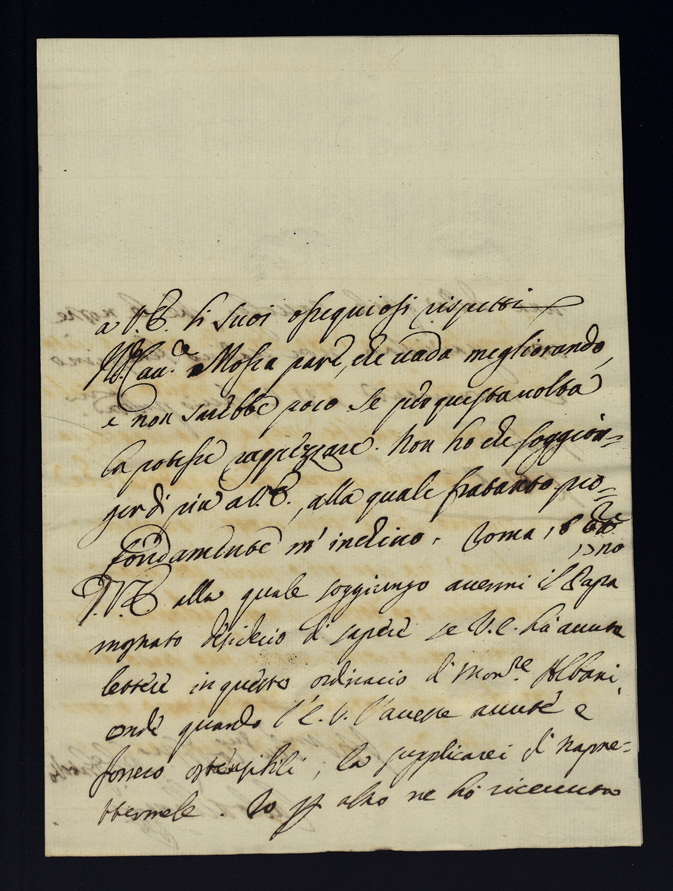 a V.E. li suoi ossequiosi rispetti
Mosca pare, che vada megliorando,
e non sarebbe poco se per questa volta
la potesse rappezzare. Non ho che soggion=
gerdi più a V.E., alla quale frattanto pro=
fondamente m'inchino. Roma, 18
V.E. alla quale soggiungo avermi il Papa
mostrato desiderio di sapere se V.E. ha avute
lettere in questo ordinario di Monre. Albani
onde quando l'E.V. l'avesse avute e
fossero ostensibili, la supplicarei di trapme=
ttermele. Io altro ne hò ricevuta